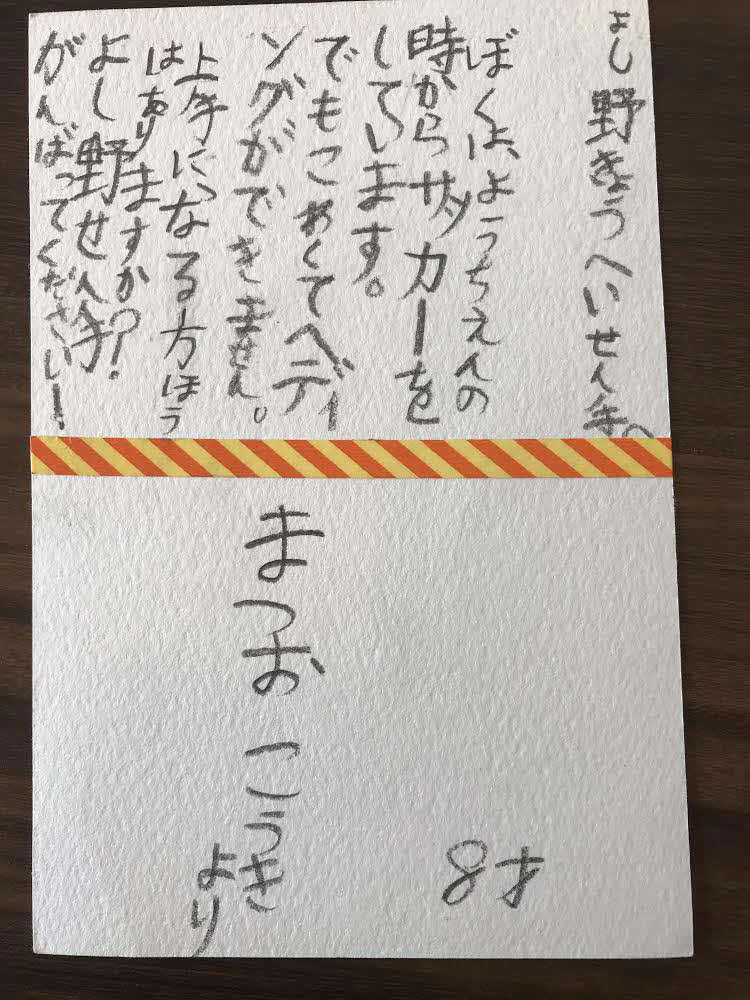 よし野きょうへいせん手へ
ぼくは、ようちえんの
時からサッカーを
しています。
でもこわくてヘディ
ングができません。
上手になる方ほう
はありますか?
よし野せん手
がんばってください!
まつお こうき
より
8才